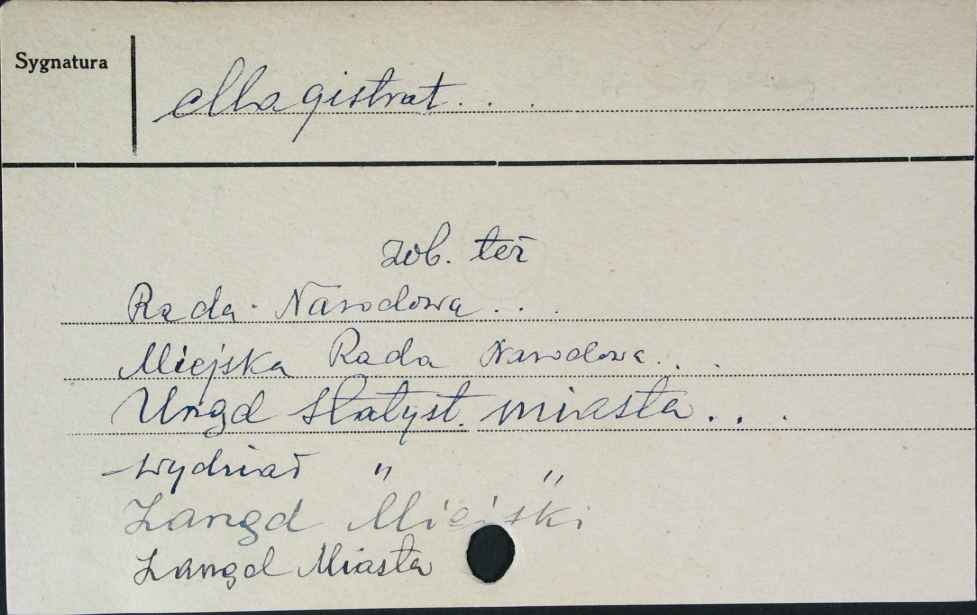 Sygnatura
Magistrat . . .
zob. też
Rada Narodowa . . .
Miejska Rada Narodowa . . .
Urząd Statyst. miasta . . .
Wydział " "
Zarząd Miejski
Zarząd Miasta